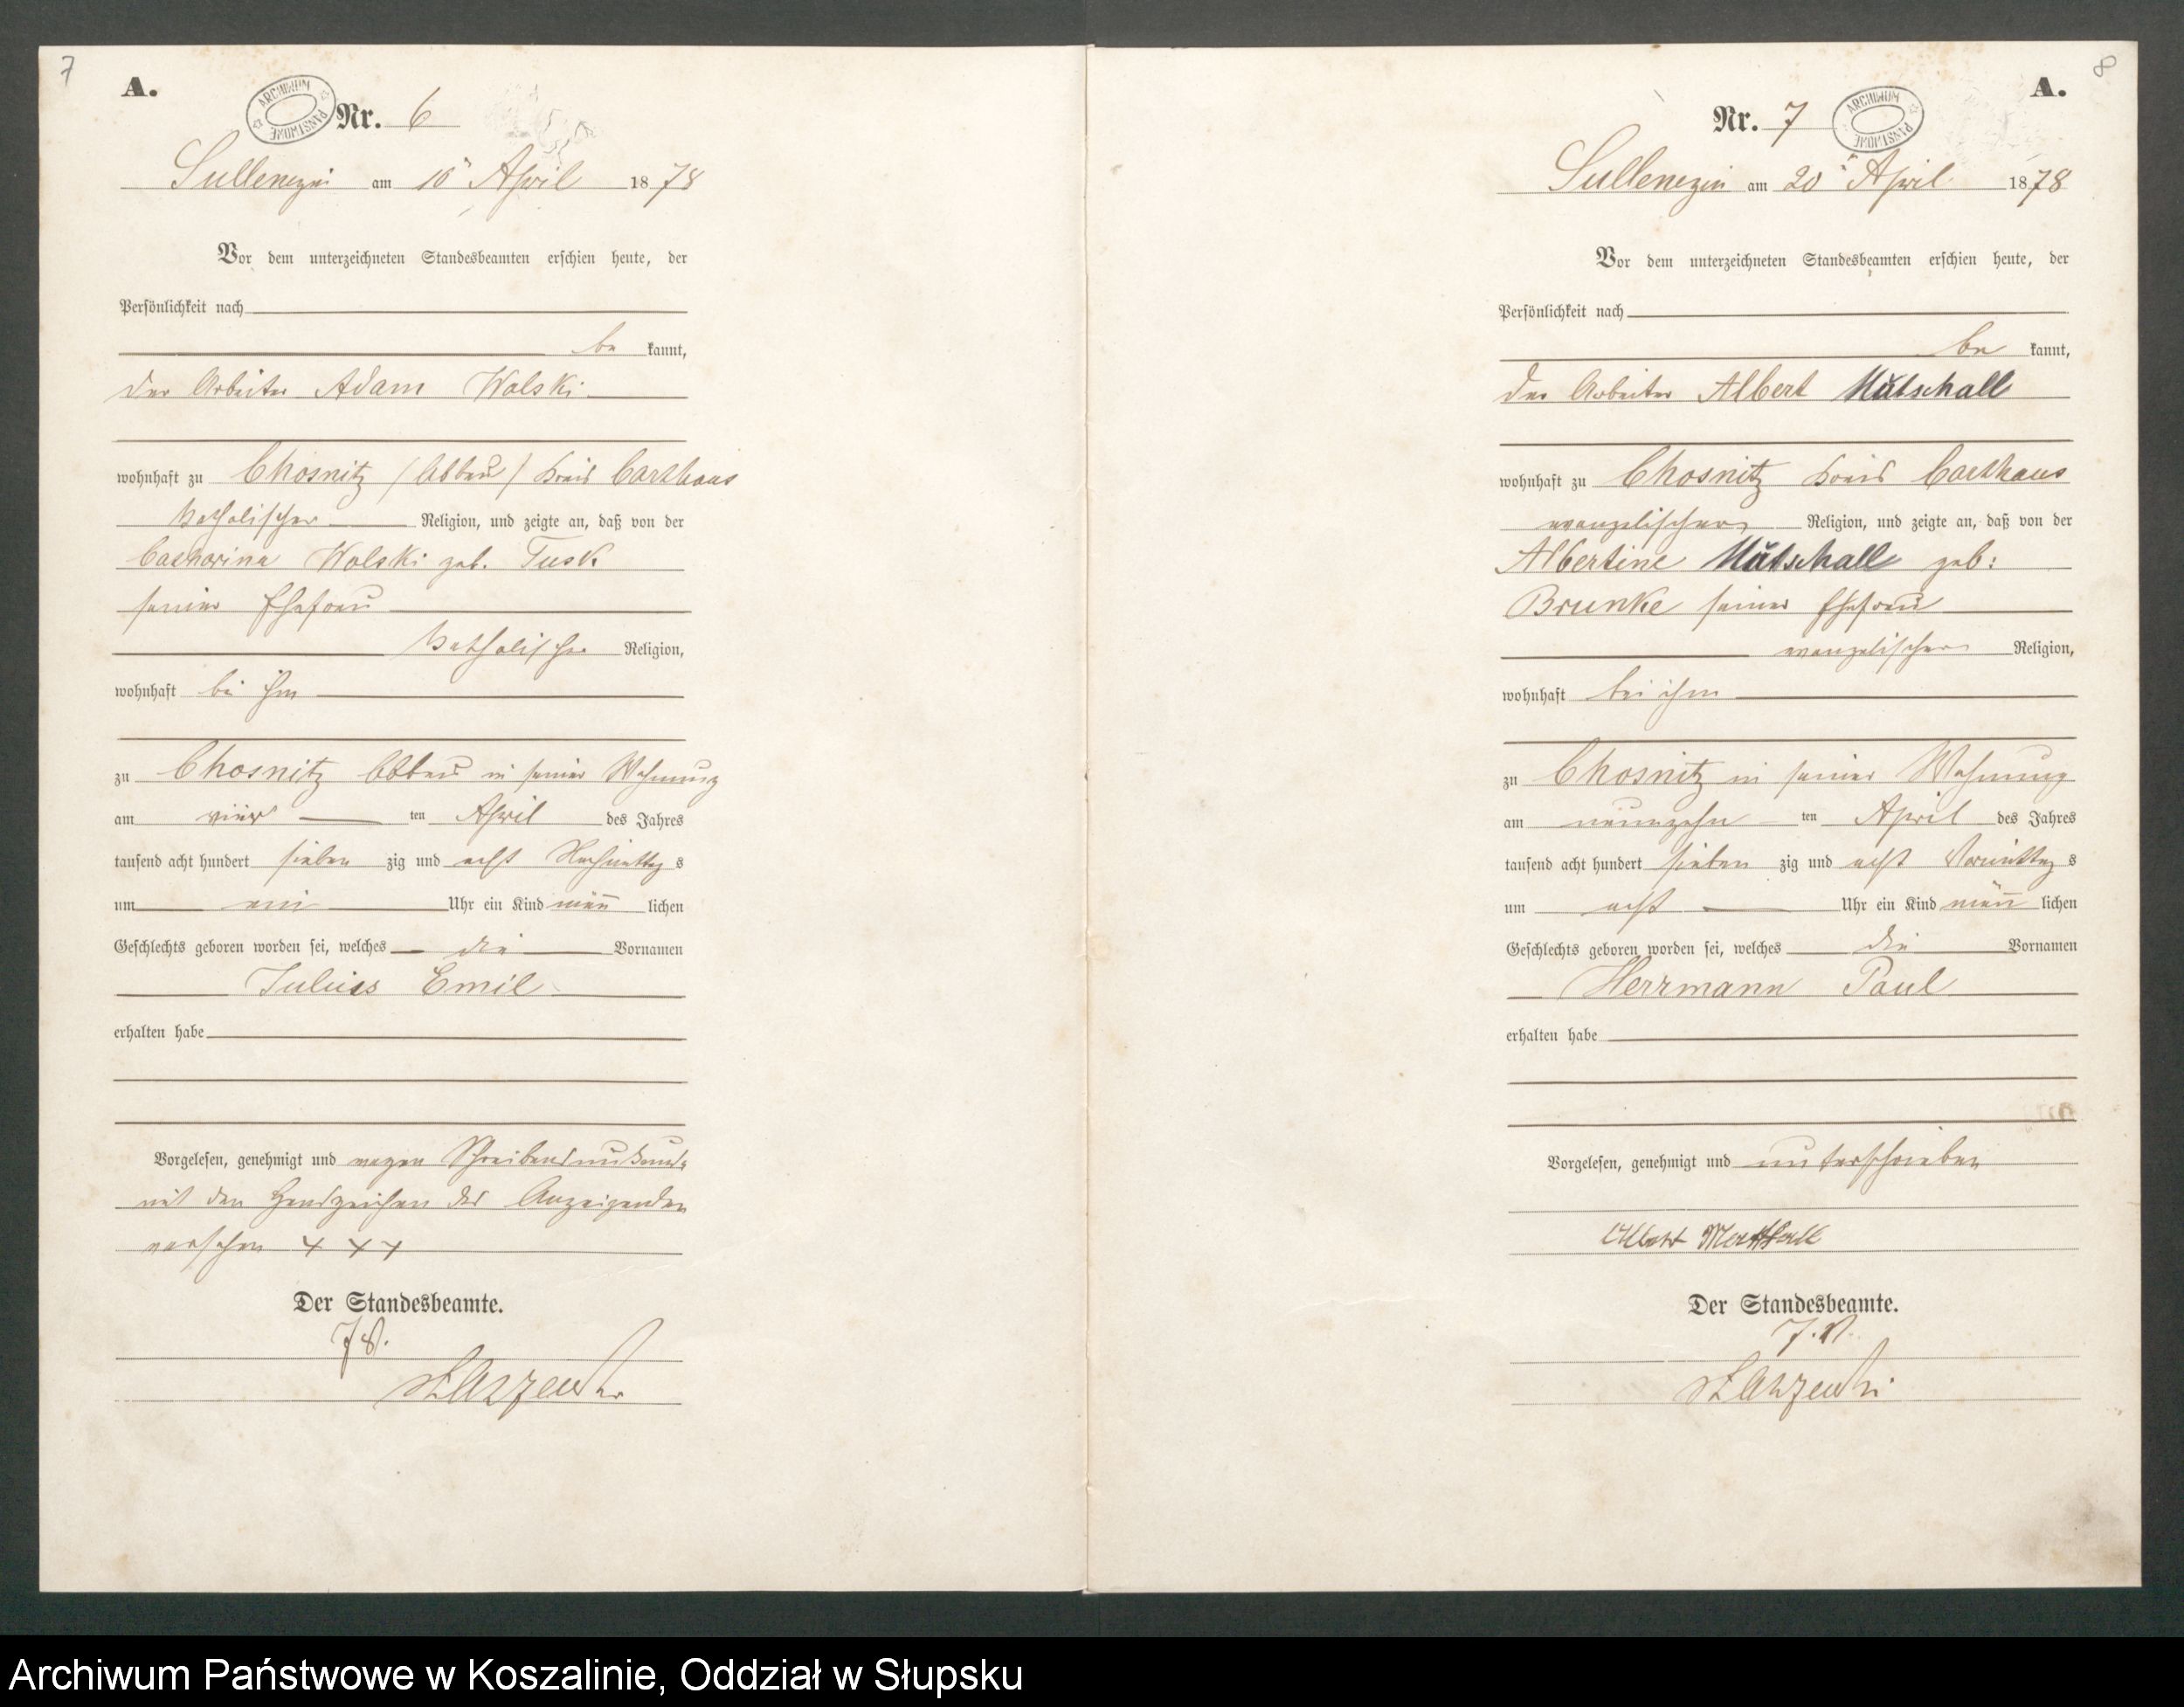 7
A.
ARCHIWUM PAŃSTWOWE
Nr. 6
Sullenczin am 10ten April 1878
Vor dem unterzeichneten Standesbeamten erschien heute, der
Persönlichkeit nach
be kannt,
der Arbeiter Adam Wolski
wohnhaft zu Chosnitz (Abbau) Kreis Carthaus
katholischer Religion, und zeigte an, daß von der
Catharina Wolski geb. Tusk
seiner Ehefrau
katholischer Religion,
wohnhaft bei ihm
zu Chosnitz Abbau in seiner Wohnung
am vier ten April des Jahres
tausend acht hundert sieben zig und acht Nachmittag s
um ein Uhr ein Kind männ lichen
Geschlechts geboren worden sei, welches die Vornamen
Julius Emil
erhalten habe
Vorgelesen, genehmigt und wegen Schreibensunkunde
mit den Handzeichen des Anzeigenden
versehen + + +
Der Standesbeamte.
J. V.
A.
8
Nr. 7
ARCHIWUM PAŃSTWOWE
Sullenczin am 20ten April 1878
Vor dem unterzeichneten Standesbeamten erschien heute, der
Persönlichkeit nach
be kannt,
der Arbeiter Albert Mutschall
wohnhaft zu Chosnitz Kreis Carthaus
evangelischer Religion, und zeigte an, daß von der
Albertine Mutschall geb:
Brunke seiner Ehefrau
evangelischer Religion,
wohnhaft bei ihm
zu Chosnitz in seiner Wohnung
am neunzehn ten April des Jahres
tausend acht hundert sieben zig und acht Vormittag s
um acht Uhr ein Kind männ lichen
Geschlechts geboren worden sei, welches die Vornamen
Herrmann Paul
erhalten habe
Vorgelesen, genehmigt und unterschrieben
Albert
Der Standesbeamte.
J. V.
Archiwum Państwowe w Koszalinie, Oddział w Słupsku